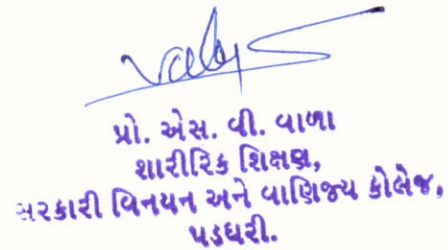 પ્રો. એસ. વી. વાળા
શારીરિક શિક્ષણ,
સરકારી વિનયન અને વાણિજ્ય કોલેજ,
પડધરી.